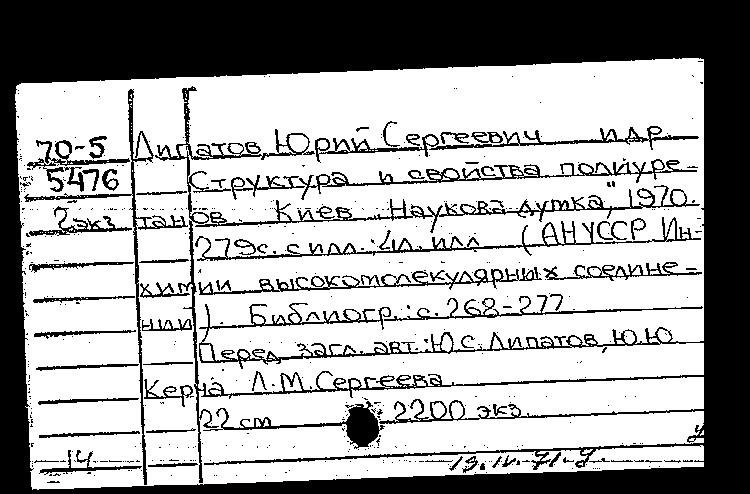 70-5 Липатов, Юрий Сергеевич и др.
5476 Структура и свойства полиуре-
2экз танов. Киев. "Наукова думка", 1970.
279с. с илл.; 4л. илл. (АН УССР Ин-
химии высокомолекулярных соедине-
ний). Библиогр.: с. 268-277
Перед загл. авт.: Ю.С. Липатов, Ю.Ю.
Керча, Л.М. Сергеева.
22 см 2200 экз.
14 19.IV.71.